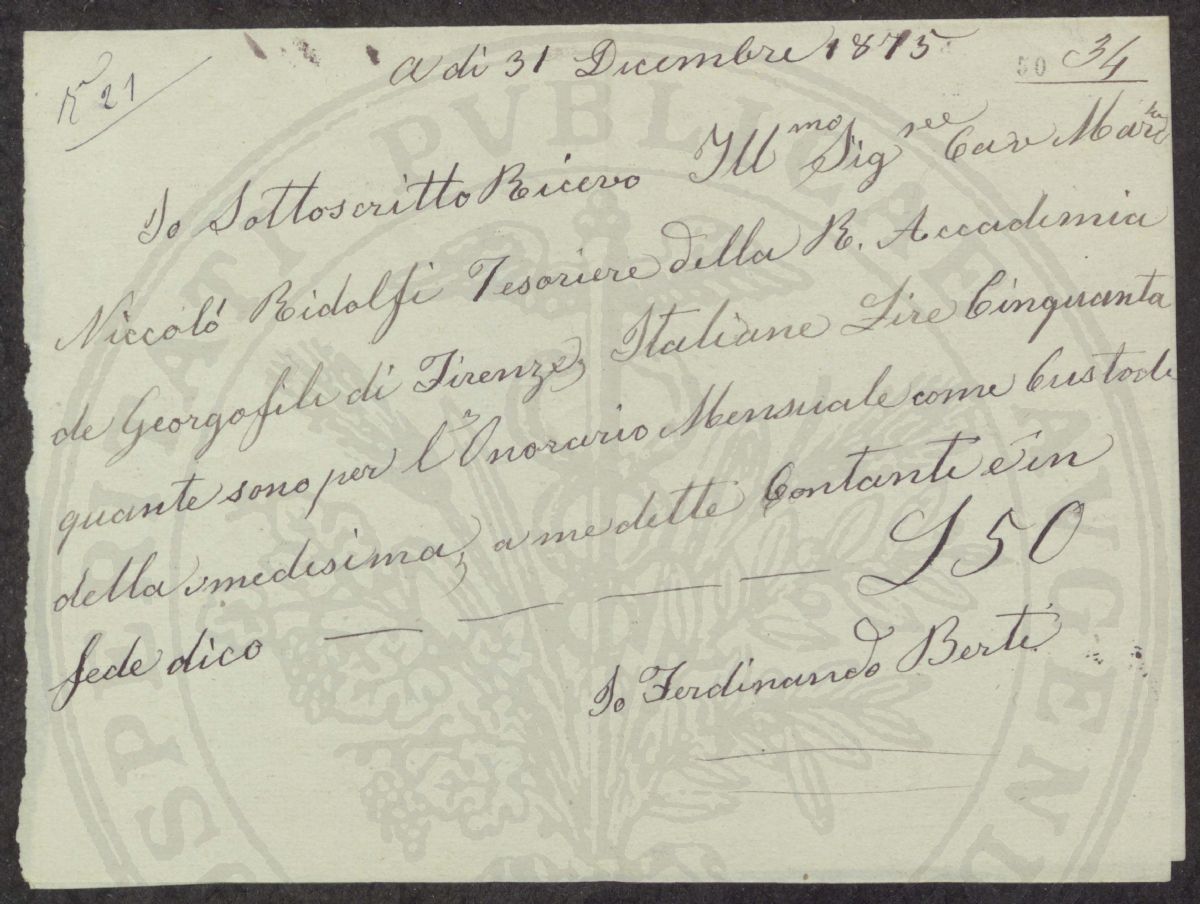 N° 21
A di 31 Dicembre 1875
50 34
Io Sottoscritto Ricevo Ill.mo Sig.ree Cav Marc
Niccoló Ridolfi Tesoriere della R. Accademia
de Georgofili di Firenze, Italiane Lire Cinquanta
quante sono per l'Onorario Mensuale come Custode
della medesima, a me dette Contanti é in
fede dico — — — — L 50
Io Ferdinando Berti
PROSPERITATI PVBLICAE AVGENDAE